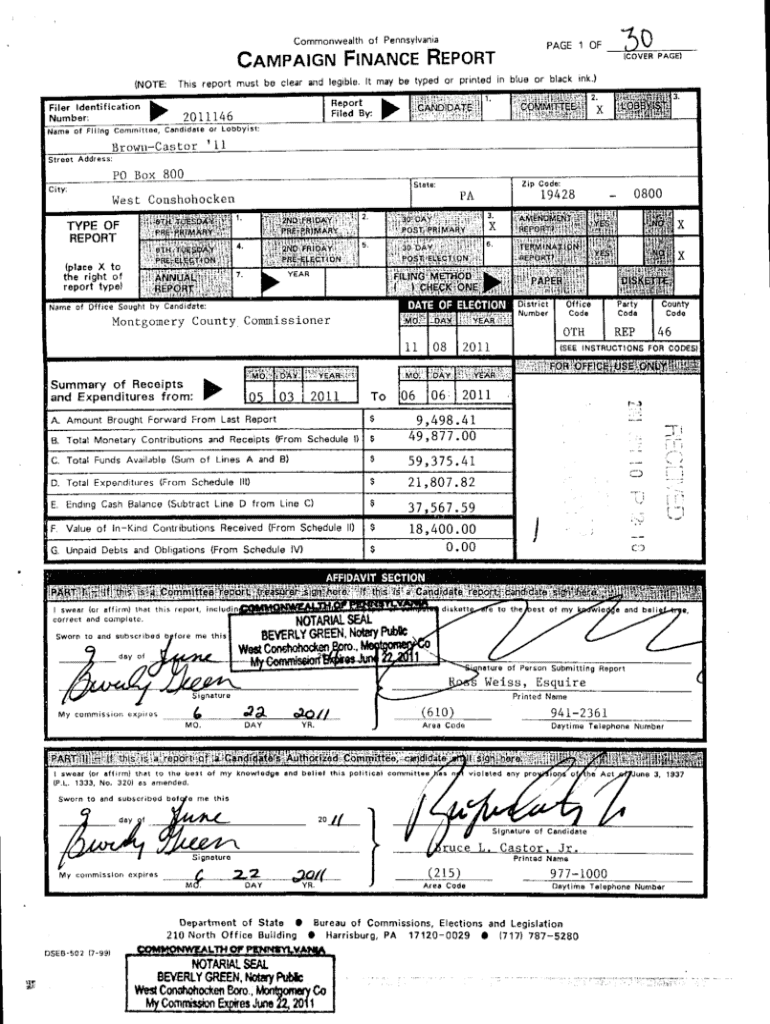 Commonwealth of Pennsylvania
CAMPAIGN FINANCE REPORT
PAGE 1 OF 30
(COVER PAGE)
(NOTE: This report must be clear and legible. It may be typed or printed in blue or black ink.)
Filer Identification Number: 2011146
Report Filed By: CANDIDATE 1. COMMITTEE 2. X LOBBYIST 3.
Name of Filing Committee, Candidate or Lobbyist:
Brown-Castor '11
Street Address:
PO Box 800
City: West Conshohocken State: PA Zip Code: 19428 - 0800
TYPE OF REPORT
(place X to the right of report type)
6TH TUESDAY PRE-PRIMARY 1. 2ND FRIDAY PRE-PRIMARY 2. 30 DAY POST PRIMARY 3. X AMENDMENT REPORT? YES NO X
6TH TUESDAY PRE-ELECTION 4. 2ND FRIDAY PRE-ELECTION 5. 30 DAY POST-ELECTION 6. TERMINATION REPORT? YES NO X
ANNUAL REPORT 7. YEAR FILING METHOD ( ) CHECK ONE PAPER DISKETTE
Name of Office Sought by Candidate:
Montgomery County Commissioner
DATE OF ELECTION
MO. DAY YEAR
11 08 2011
District Number Office Code Party Code County Code
OTH REP 46
(SEE INSTRUCTIONS FOR CODES)
FOR OFFICE USE ONLY
RECEIVED
Summary of Receipts and Expenditures from:
MO. DAY YEAR MO. DAY YEAR
05 03 2011 To 06 06 2011
A. Amount Brought Forward From Last Report $ 9,498.41
B. Total Monetary Contributions and Receipts (From Schedule I) $ 49,877.00
C. Total Funds Available (Sum of Lines A and B) $ 59,375.41
D. Total Expenditures (From Schedule III) $ 21,807.82
E. Ending Cash Balance (Subtract Line D from Line C) $ 37,567.59
F. Value of In-Kind Contributions Received (From Schedule II) $ 18,400.00
G. Unpaid Debts and Obligations (From Schedule IV) $ 0.00
AFFIDAVIT SECTION
PART I - If this is a Committee report, treasurer sign here. If this is a Candidate report, candidate sign here.
I swear (or affirm) that this report, including diskette, are to the best of my knowledge and belief true,
correct and complete.
COMMONWEALTH OF PENNSYLVANIA
NOTARIAL SEAL
BEVERLY GREEN, Notary Public
West Conshohocken Boro., Montgomery Co
My Commission Expires June 22, 2011
Sworn to and subscribed before me this
9 day of June
Beverly Green
Signature
My commission expires 6 22 2011
MO. DAY YR.
Signature of Person Submitting Report
Ross Weiss, Esquire
Printed Name
(610) 941-2361
Area Code Daytime Telephone Number
PART II - If this is a report of a Candidate's Authorized Committee, candidate shall sign here.
I swear (or affirm) that to the best of my knowledge and belief this political committee has not violated any provisions of the Act of June 3, 1937
(P.L. 1333, No. 320) as amended.
Sworn to and subscribed before me this
9 day of June 2011
Beverly Green
Signature
My commission expires 6 22 2011
MO. DAY YR.
Signature of Candidate
Bruce L. Castor, Jr.
Printed Name
(215) 977-1000
Area Code Daytime Telephone Number
Department of State ● Bureau of Commissions, Elections and Legislation
210 North Office Building ● Harrisburg, PA 17120-0029 ● (717) 787-5280
DSEB-502 (7-99)
COMMONWEALTH OF PENNSYLVANIA
NOTARIAL SEAL
BEVERLY GREEN, Notary Public
West Conshohocken Boro., Montgomery Co
My Commission Expires June 22, 2011